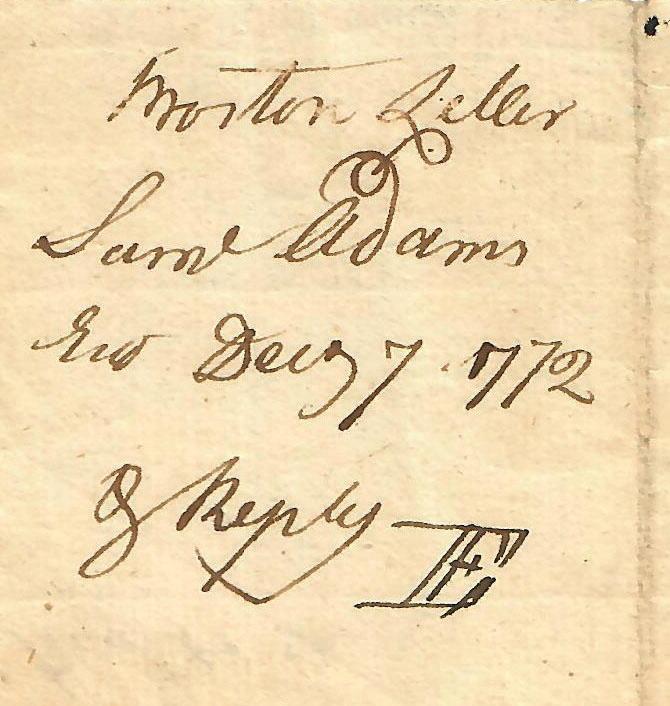 Boston Letter
Saml Adams
Decr 7 1772
& Reply